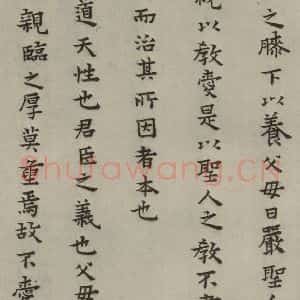 之膝下以養父母日嚴聖人
親以教愛是以聖人之教不肅
而治其所因者本也
道天性也君臣之義也父母
親臨之厚莫重焉故不愛
Shufawang.CN